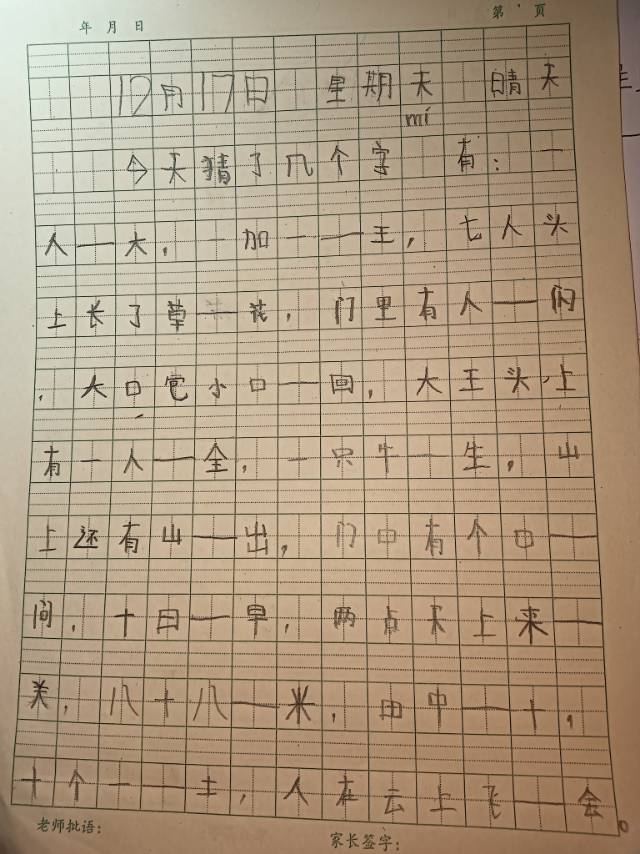 年 月 日 第 页
12月17日 星期天 晴天
mí
今天猜了几个字 有：一
人——大，一加一——王，七人头
上长了草——花，门里有人——闪
，大口宅小口——回，大王头上
有一人——全，一只牛——生，山
上还有山——出，门中有个日——
间，十日——早，两点天上来——
关，八十八——米，田中——十，
十个一——土，人在云上飞——会
。
老师批语：
家长签字：